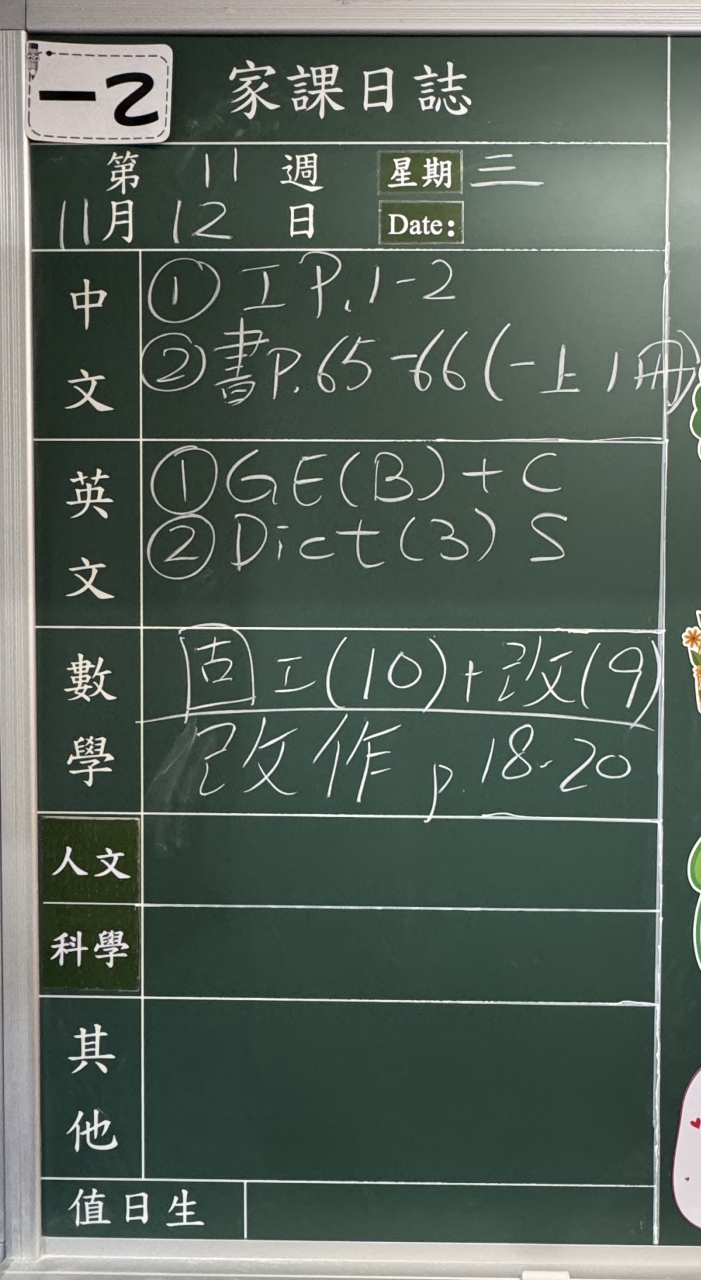 一乙
家課日誌
第 11 週 星期 三
11月 12 日 Date:
中文
① 工 P.1-2
② 書P.65-66(一上1冊)
英文
① GE(B)+C
② Dict(3) S
數學
固工(10)+改(9)
改作 p.18-20
人文
科學
其他
值日生